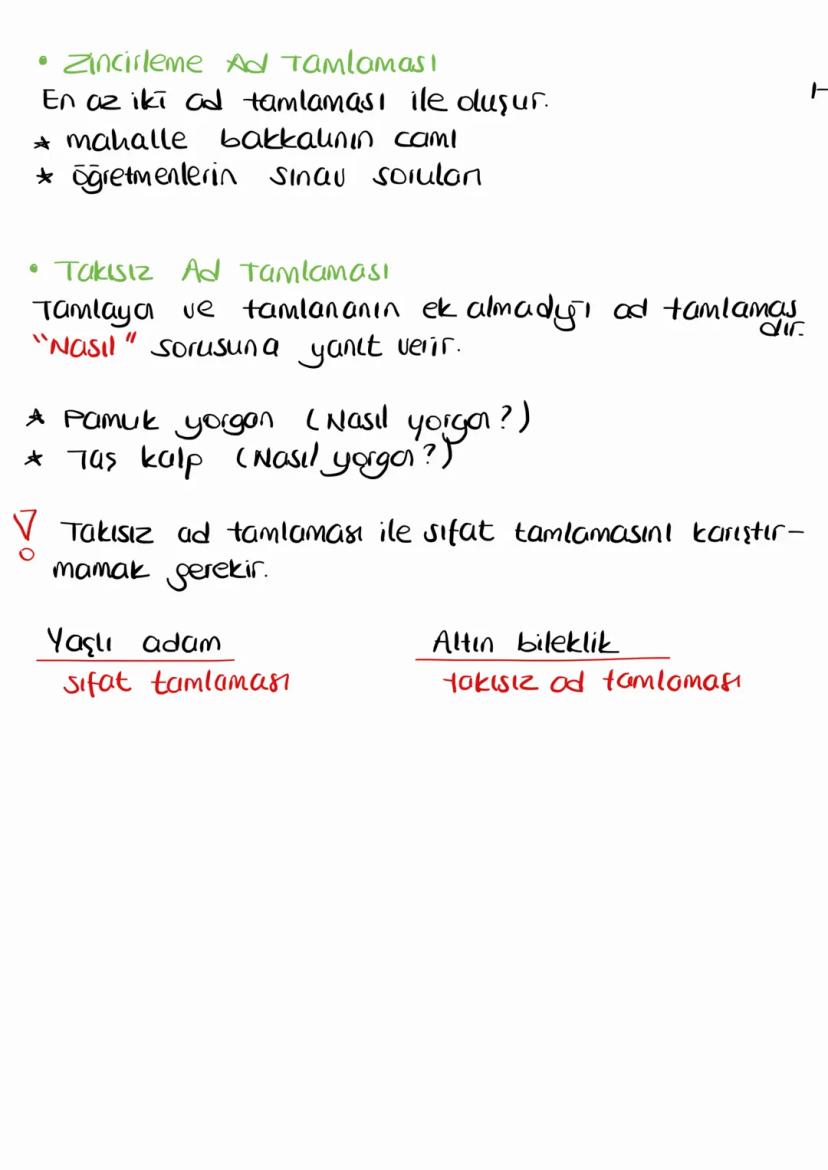 • Zincirleme Ad Tamlaması
En az iki ad tamlaması ile oluşur.
* mahalle bakkalının camı
* öğretmenlerin sınav soruları
• Takısız Ad Tamlaması
Tamlayan ve tamlananın ek almadığı ad tamlaması
dır.
"Nasıl" sorusuna yanıt verir.
* Pamuk yorgan (Nasıl yorgan?)
* Taş kalp (Nasıl yorgan?)
! Takısız ad tamlaması ile sıfat tamlamasını karıştır-
mamak gerekir.
Yaşlı adam Altın bileklik
sıfat tamlaması takısız ad tamlaması